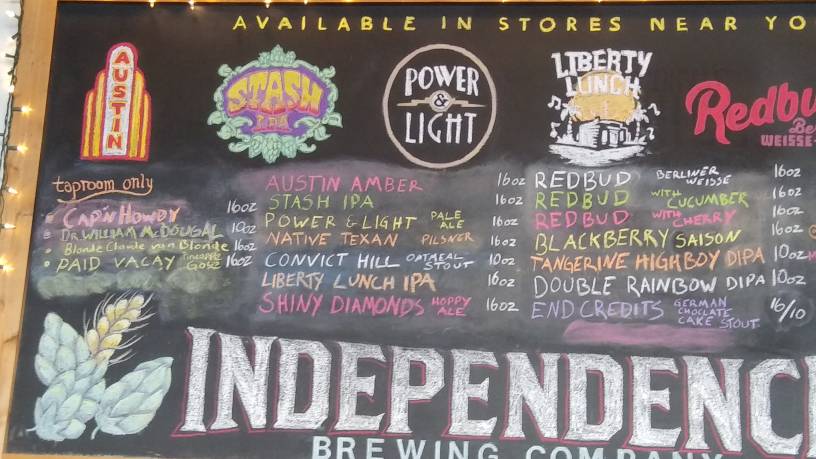 AVAILABLE IN STORES NEAR YO
AUSTIN
STASH
IPA
POWER
&
LIGHT
LIBERTY
LUNCH
Redbu
Be
WEISSE-
taproom only
CAP'N HOWDY 16oz
DR. WILLIAM McDOUGAL 10oz
Blonde Claude van Blonde 16oz
PAID VACAY PINEAPPLE GOSE 16oz
AUSTIN AMBER 16oz
STASH IPA 16oz
POWER & LIGHT PALE ALE 16oz
NATIVE TEXAN PILSNER 16oz
CONVICT HILL OATMEAL STOUT 10oz
LIBERTY LUNCH IPA 16oz
SHINY DIAMONDS HOPPY ALE 16oz
REDBUD BERLINER WEISSE 16oz
REDBUD WITH CUCUMBER 16oz
REDBUD WITH CHERRY 16oz
BLACKBERRY SAISON 16oz
TANGERINE HIGHBOY DIPA 10oz
DOUBLE RAINBOW DIPA 10oz
END CREDITS GERMAN CHOCLATE CAKE STOUT 16/10
INDEPENDENC
BREWING COMPANY